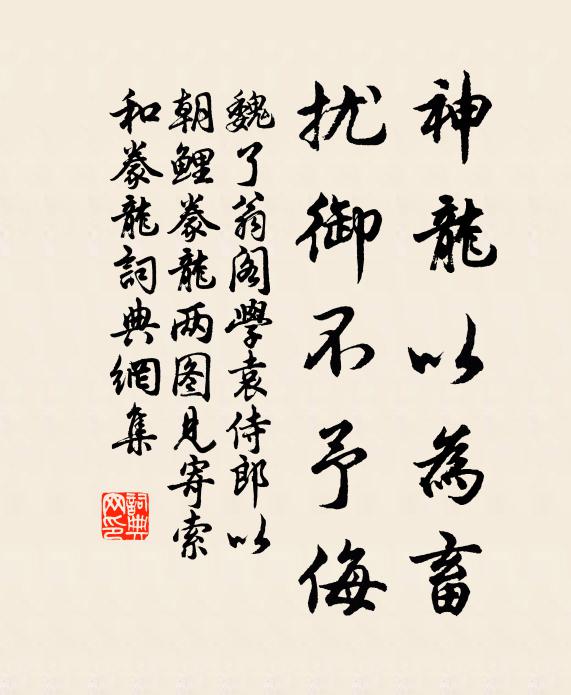 神龍以為畜
扰御不予侮
魏了翁阁學袁侍郎以
朝鲤豢龍两图見寄索
和豢龍詞典網集
詞典
网印